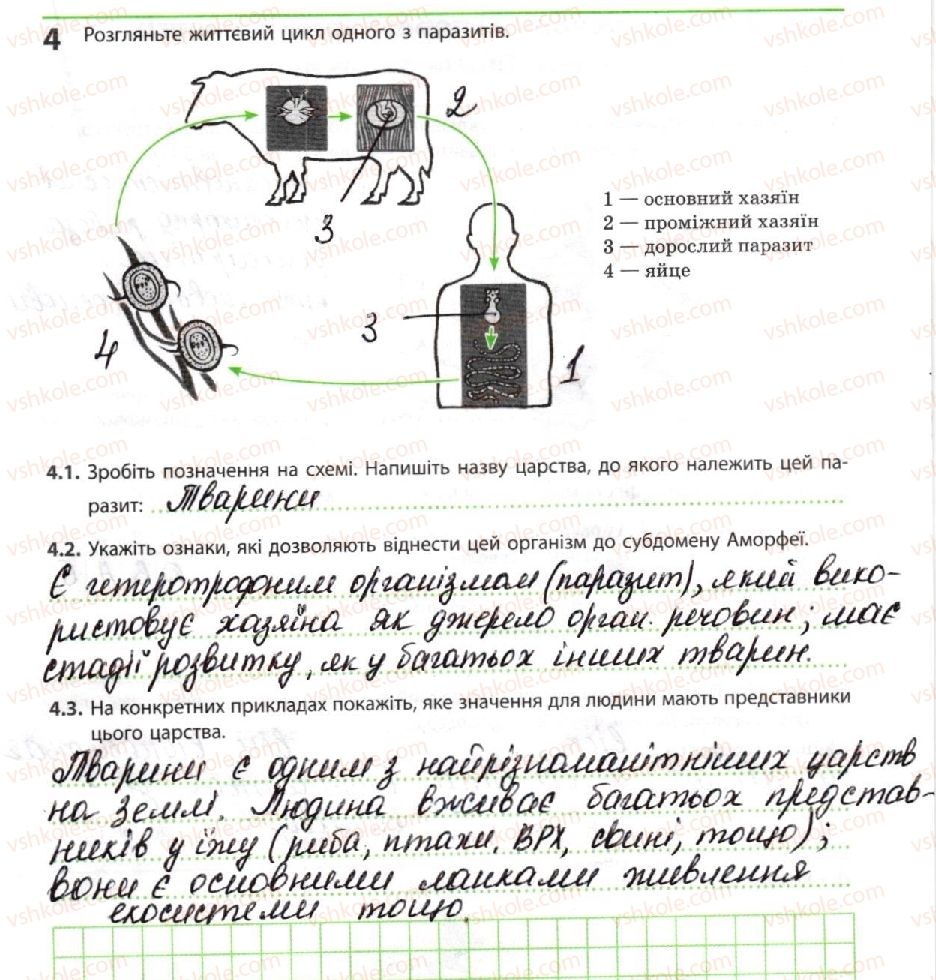 4 Розгляньте життєвий цикл одного з паразитів.
2
3
1 — основний хазяїн
2 — проміжний хазяїн
3 — дорослий паразит
4 — яйце
3
4
1
4.1. Зробіть позначення на схемі. Напишіть назву царства, до якого належить цей па-
разит: Тварини
4.2. Укажіть ознаки, які дозволяють віднести цей організм до субдомену Аморфеї.
Є гетеротрофним організмом (паразит), який вико-
ристовує хазяїна як джерело орган. речовин; має
стадії розвитку, як у багатьох інших тварин.
4.3. На конкретних прикладах покажіть, яке значення для людини мають представники
цього царства.
Тварини є одним з найрізноманітніших царств
на землі. Людина вживає багатьох представ-
ників у їжу (риба, птахи, ВРХ, свині, тощо);
вони є основними ланками живлення
екосистеми тощо.
vshkole.com